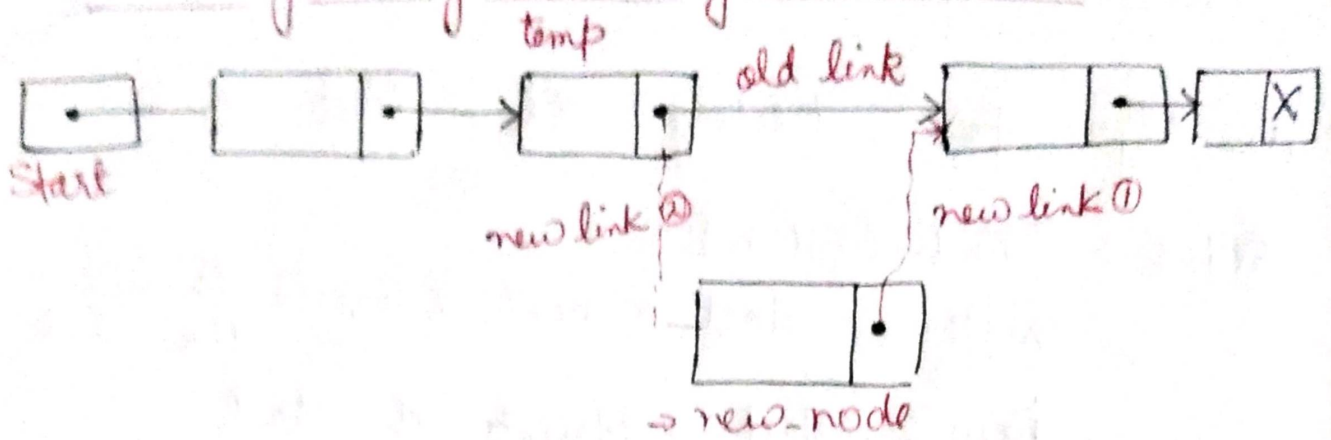 temp
old link
X
Start
new link ②
new link ①
→ new_node